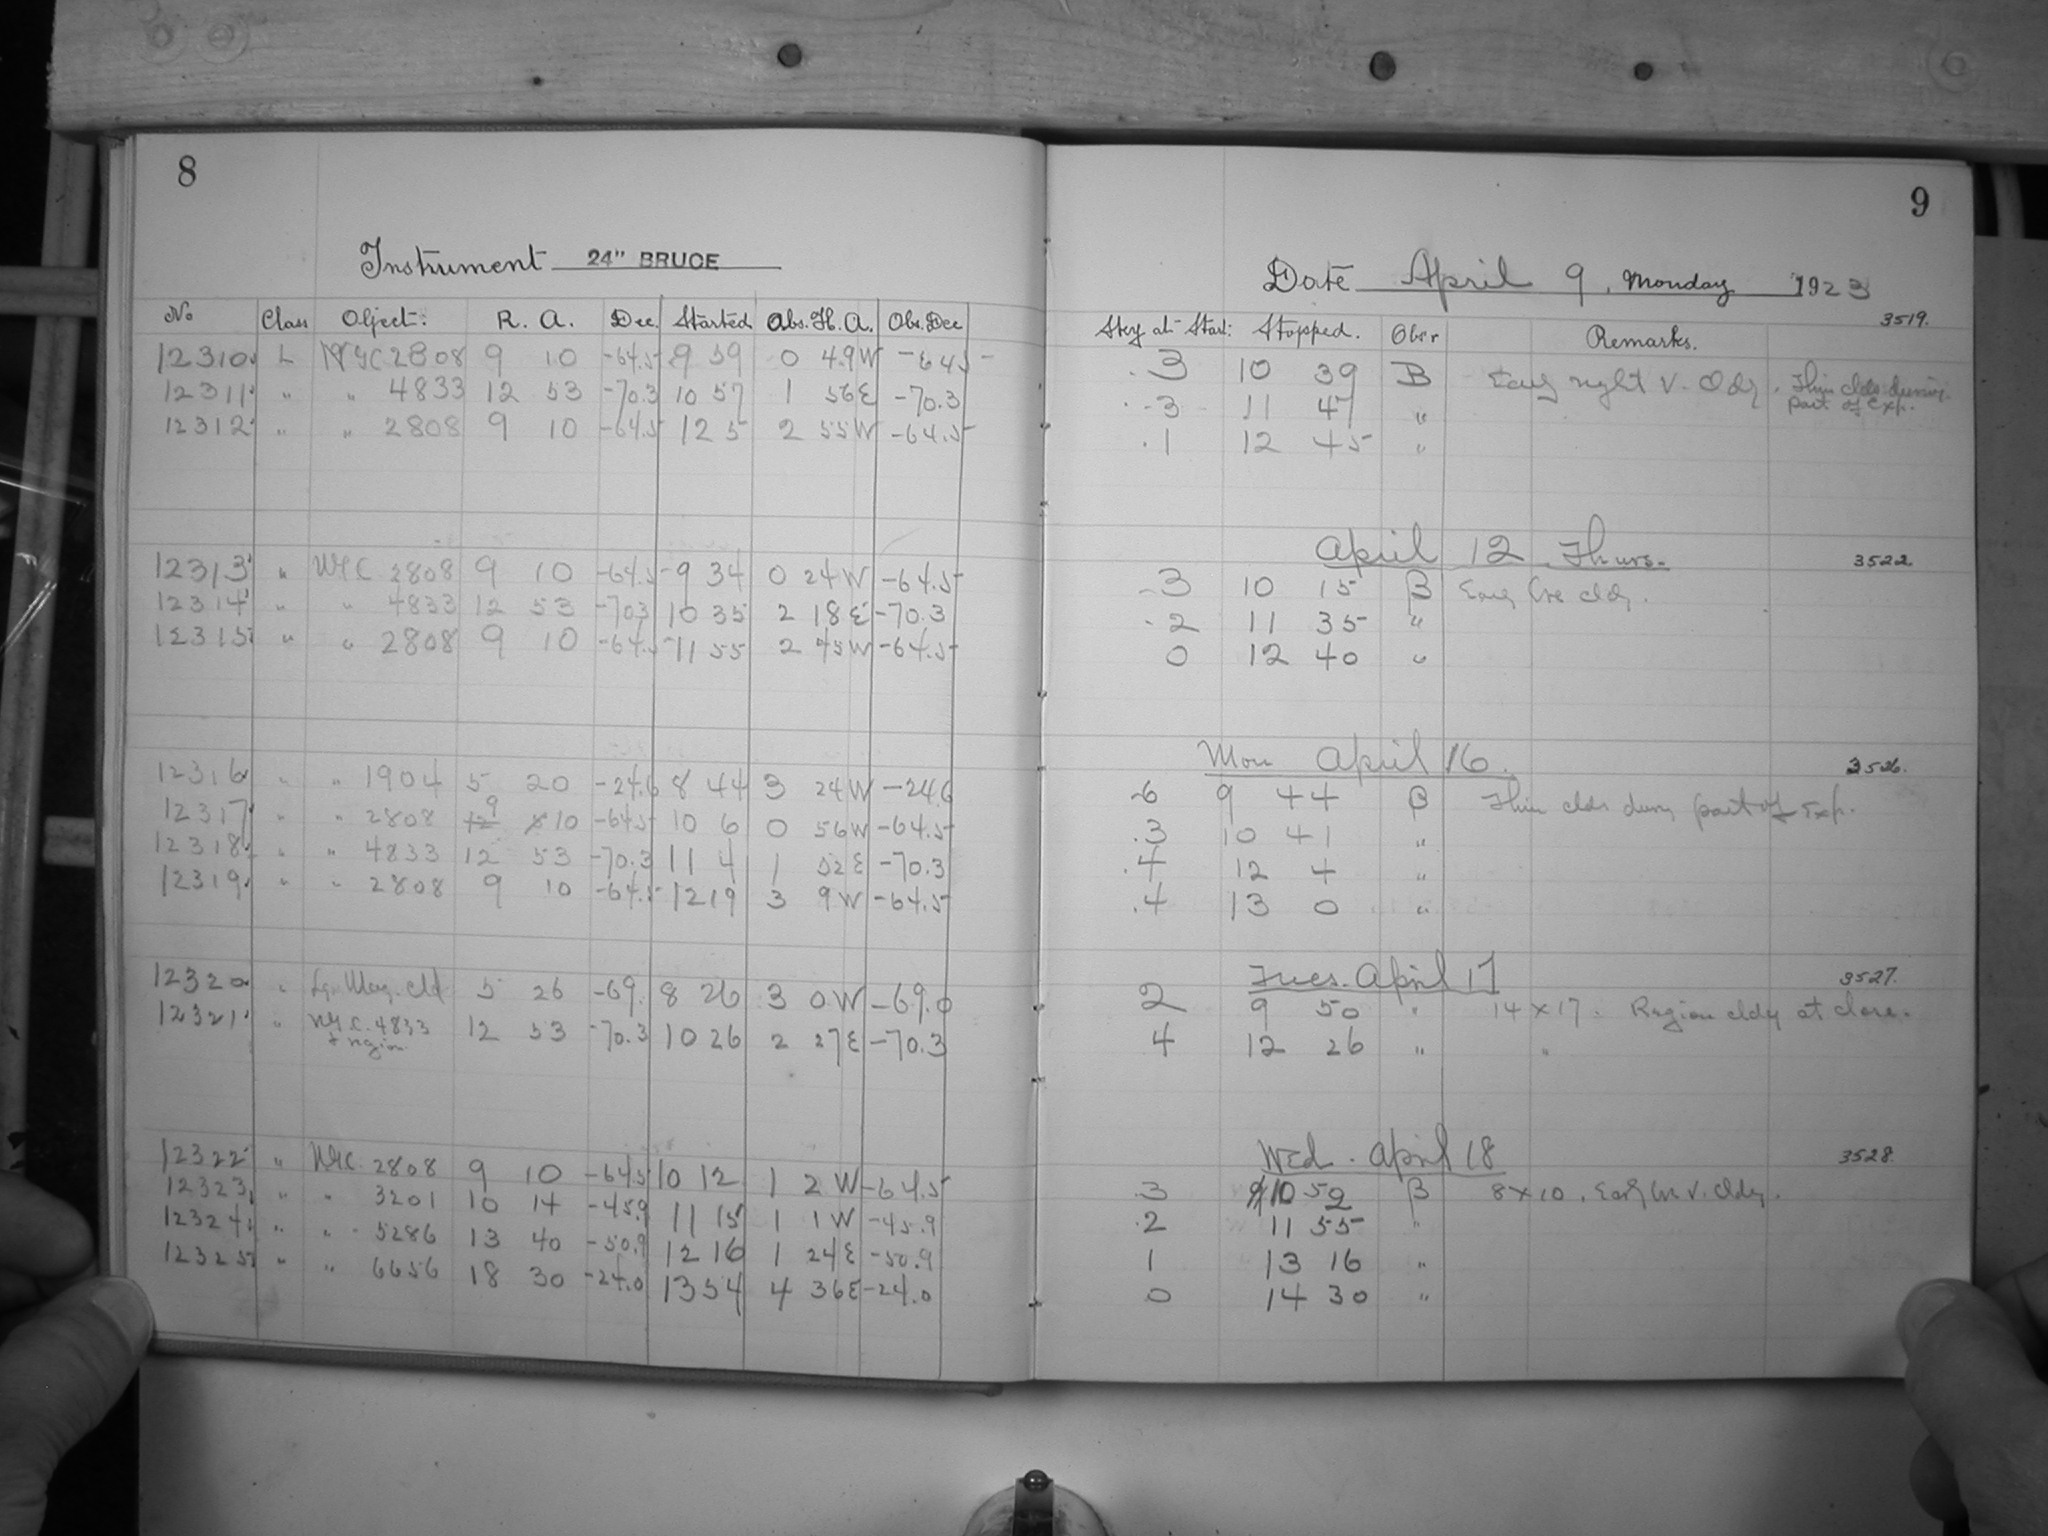 8
Instrument 24" BRUCE
No Class Object: R. A. Dec. Started Obs. H. A. Obs. Dec
12310 L NGC 2808 9 10 -64.5 9 59 0 49W -64.5
12311 " " 4833 12 53 -70.3 10 57 1 56E -70.3
12312 " " 2808 9 10 -64.5 12 5 2 55W -64.5
12313 " NGC 2808 9 10 -64.5 9 34 0 24W -64.5
12314 " " 4833 12 53 -70.3 10 35 2 18E -70.3
12315 " " 2808 9 10 -64.5 11 55 2 45W -64.5
12316 " " 1904 5 20 -24.6 8 44 3 24W -24.6
12317 " " 2808 9 10 -64.5 10 6 0 56W -64.5
12318 " " 4833 12 53 -70.3 11 4 1 52E -70.3
12319 " " 2808 9 10 -64.5 12 19 3 9W -64.5
12320 " Lg. Mag. cld 5 26 -69. 8 26 3 0W -69.0
12321 " N.G.C. 4833 12 53 -70.3 10 26 2 27E -70.3
+ region
12322 " NGC. 2808 9 10 -64.5 10 12 1 2W -64.5
12323 " " 3201 10 14 -45.9 11 15 1 1W -45.9
12324 " " 5286 13 40 -50.9 12 16 1 24E -50.9
12325 " " 6656 18 30 -24.0 13 54 4 36E -24.0
9
Date April 9, Monday 1923
3519.
Sky at Start: Stopped. Obsr Remarks.
.3 10 39 B Early night v. cldy. Thin clds during
part of exp.
.3 11 47 "
.1 12 45 "
April 12 Thurs. 3522
.3 10 15 B Early eve cldy.
.2 11 35 "
0 12 40 "
Mon April 16. 3526.
.6 9 44 B Thin clds during part of Exp.
.3 10 41 "
.4 12 4 "
.4 13 0 "
Tues. April 17 3527.
2 9 50 " 14 x 17. Region cldy at close.
4 12 26 " "
Wed. April 18 3528.
.3 10 52 B 8 x 10. Early eve v. cldy.
.2 11 55 "
1 13 16 "
0 14 30 "